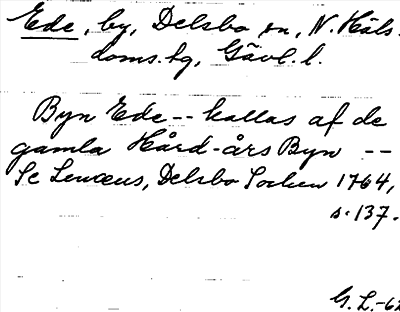 Ede, by, Delsbo sn, N. Häls.
doms.hg, Gävl. l.
Byn Ede -- kallas af de
gamla Hård-års Byn --
Se Lenæus, Delsbo Socken 1764,
s. 137.
G. L.-62